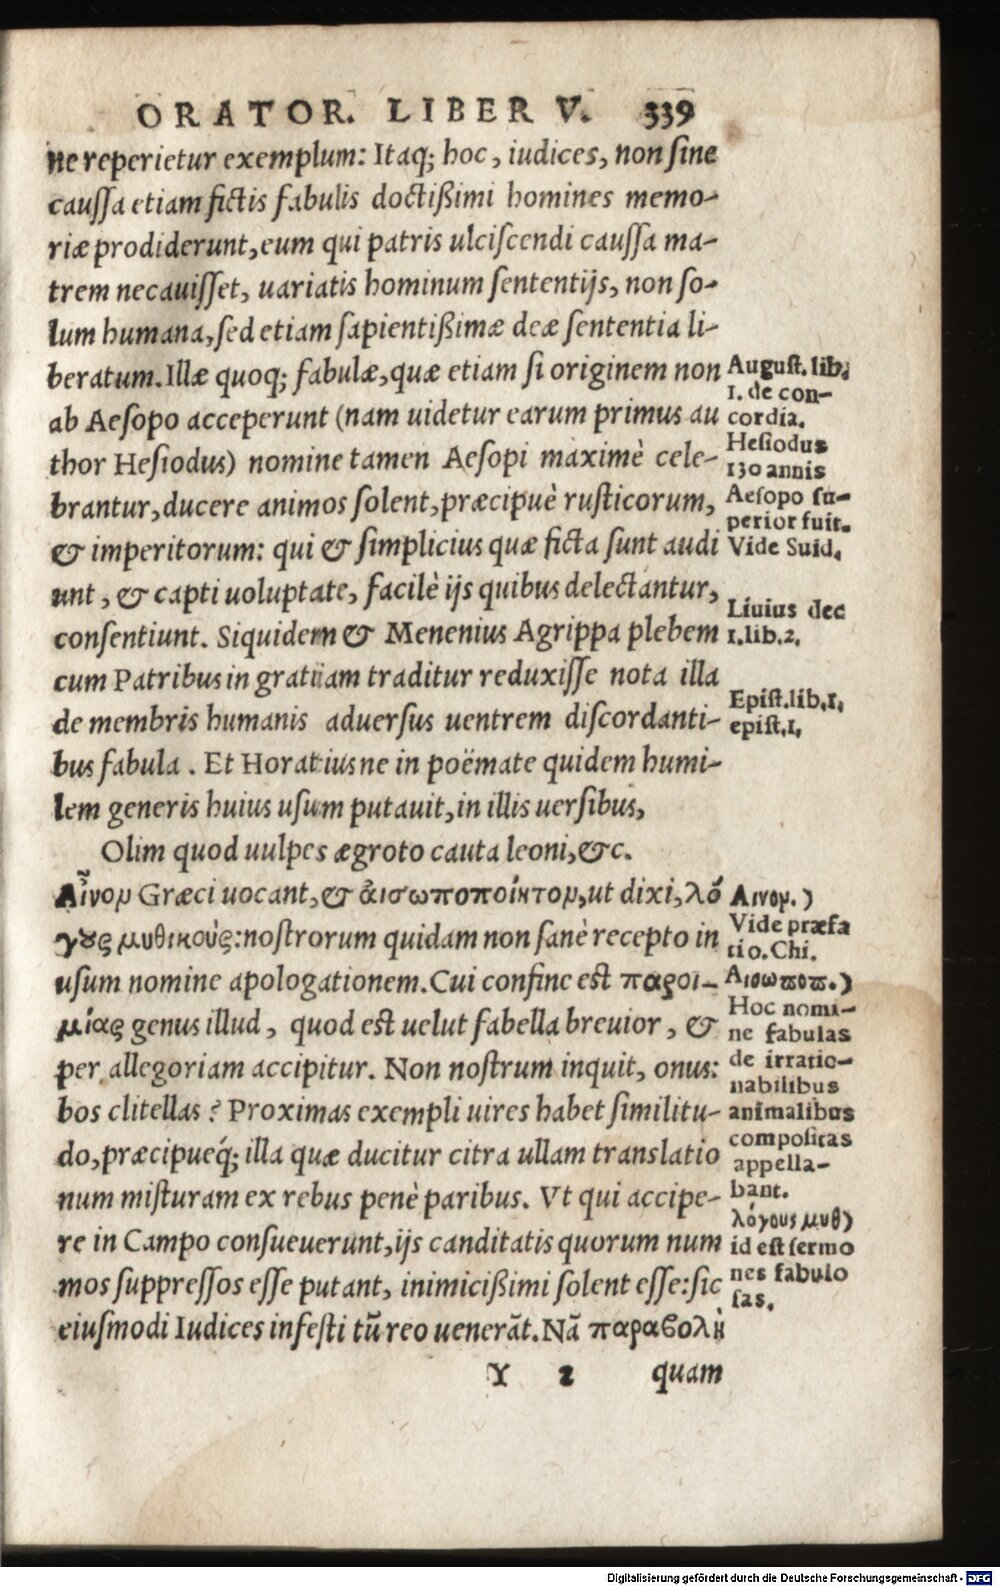 ORATOR. LIBER V. 339
ne reperietur exemplum: Itaq; hoc, iudices, non sine
caussa etiam fictis fabulis doctißimi homines memo-
riæ prodiderunt, eum qui patris ulciscendi caussa ma-
trem necauisset, uariatis hominum sententijs, non so-
lum humana, sed etiam sapientißimæ deæ sententia li-
beratum. Illæ quoq; fabulæ, quæ etiam si originem non
ab Aesopo acceperunt (nam uidetur earum primus au
thor Hesiodus) nomine tamen Aesopi maximè cele-
brantur, ducere animos solent, præcipuè rusticorum,
& imperitorum: qui & simplicius quæ ficta sunt audi
unt, & capti uoluptate, facilè ijs quibus delectantur,
consentiunt. Siquidem & Menenius Agrippa plebem
cum Patribus in gratiam traditur reduxisse nota illa
de membris humanis aduersus uentrem discordanti-
bus fabula. Et Horatius ne in poëmate quidem humi-
lem generis huius usum putauit, in illis uersibus,
Olim quod uulpes ægroto cauta leoni, &c.
Αἶνον Græci uocant, & αἰσωποποίητον, ut dixi, λό
γους μυθικούς: nostrorum quidam non sanè recepto in
usum nomine apologationem. Cui confine est παροι-
μίας genus illud, quod est uelut fabella breuior, &
per allegoriam accipitur. Non nostrum inquit, onus:
bos clitellas? Proximas exempli uires habet similitu-
do, præcipueq́; illa quæ ducitur citra ullam translatio
num misturam ex rebus penè paribus. Vt qui accipe-
re in Campo consueuerunt, ijs canditatis quorum num
mos suppressos esse putant, inimicißimi solent esse: sic
eiusmodi Iudices infesti tũ reo uenerãt. Nã παραβολὴ
Y 2 quam
August. lib.
1. de con-
cordia.
Hesiodus
130 annis
Aesopo su-
perior fuit.
Vide Suid.
Liuius dec
1. lib. 2.
Epist. lib. 1.
epist. 1.
Αινον.)
Vide præfa
tio. Chi.
Αισωποπ.)
Hoc nomi-
ne fabulas
de irratio-
nabilibus
animalibus
compositas
appella-
bant.
λόγους μυθ)
id est sermo
nes fabulo
sas.
Digitalisierung gefördert durch die Deutsche Forschungsgemeinschaft - DFG